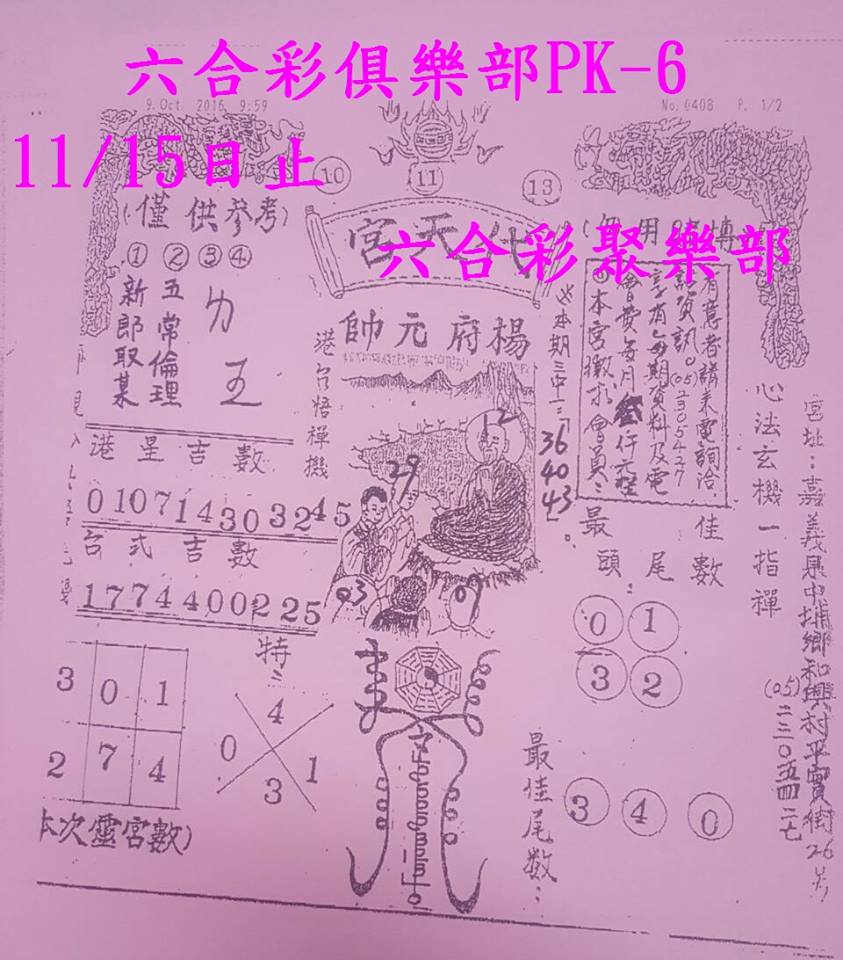 六合彩俱樂部PK-6
9.Oct. 2016 9:59
No.0408 P. 1/2
11/15日止
10 11 13
(僅供參考)
六合彩聚樂部
宮天
①②③④
新郎取某
五常倫理
力
五
帥元府楊
港台悟禪機
※本期三中一:「36 40 43」。
有意者請來電詢洽
記資訊。(05)2305427
設有每期資料及電
會費每月叁仟元整
本宮徵求會員:
心法玄機一指禪
宮址:嘉義縣中埔鄉和興村平實街26号
(05)二三0五四二七
港星吉數
010714303245
台式吉數
177440022 25
12
29
03
07
最佳
頭尾數
0 1
3 2
3 0 1
2 7 4
本次靈宮數)
特:
4
0 1
3
最佳尾數:
3 4 0